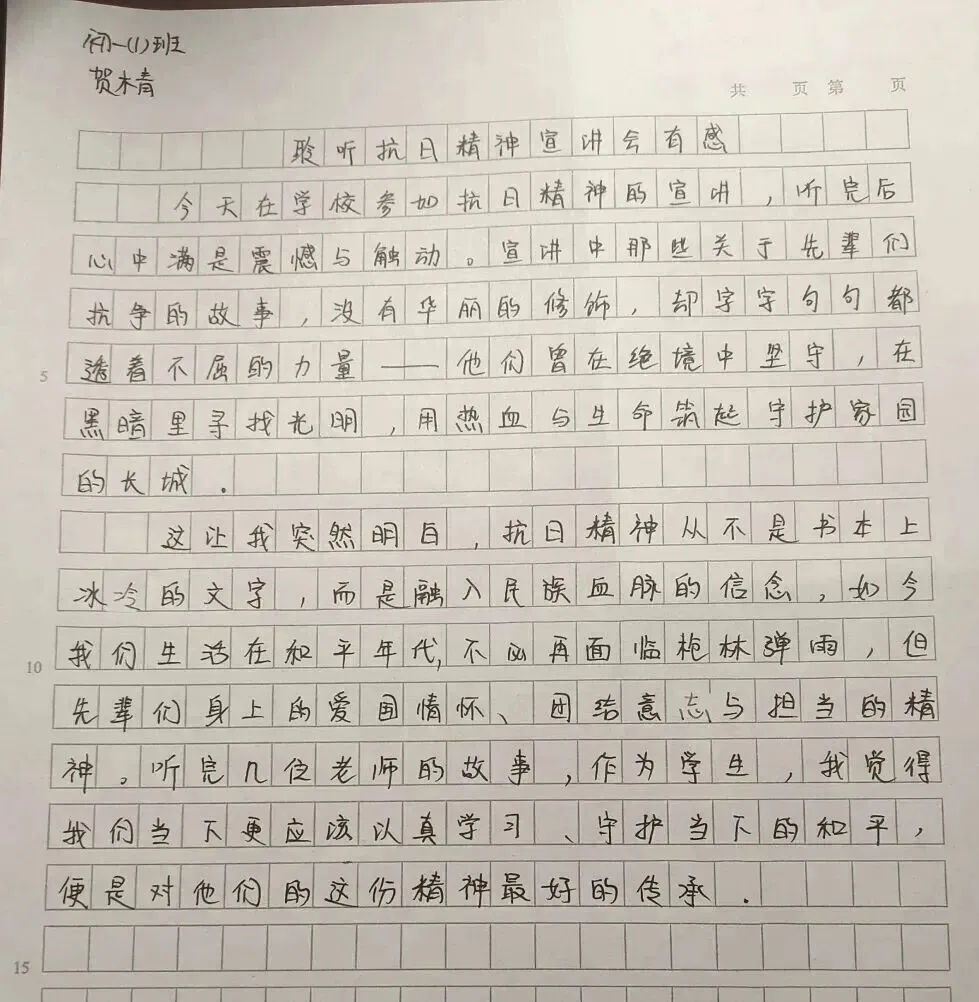 初一(1)班
贺木青
共 页 第 页
聆听抗日精神宣讲会有感
今天在学校参加抗日精神的宣讲，听完后
心中满是震憾与触动。宣讲中那些关于先辈们
抗争的故事，没有华丽的修饰，却字字句句都
5 透着不屈的力量——他们曾在绝境中坚守，在
黑暗里寻找光明，用热血与生命筑起守护家园
的长城.
这让我突然明白，抗日精神从不是书本上
冰冷的文字，而是融入民族血脉的信念，如今
10 我们生活在和平年代,不必再面临枪林弹雨，但
先辈们身上的爱国情怀、团结意志与担当的精
神。听完几位老师的故事，作为学生，我觉得
我们当下更应该以真学习、守护当下的和平，
便是对他们的这份精神最好的传承.
15